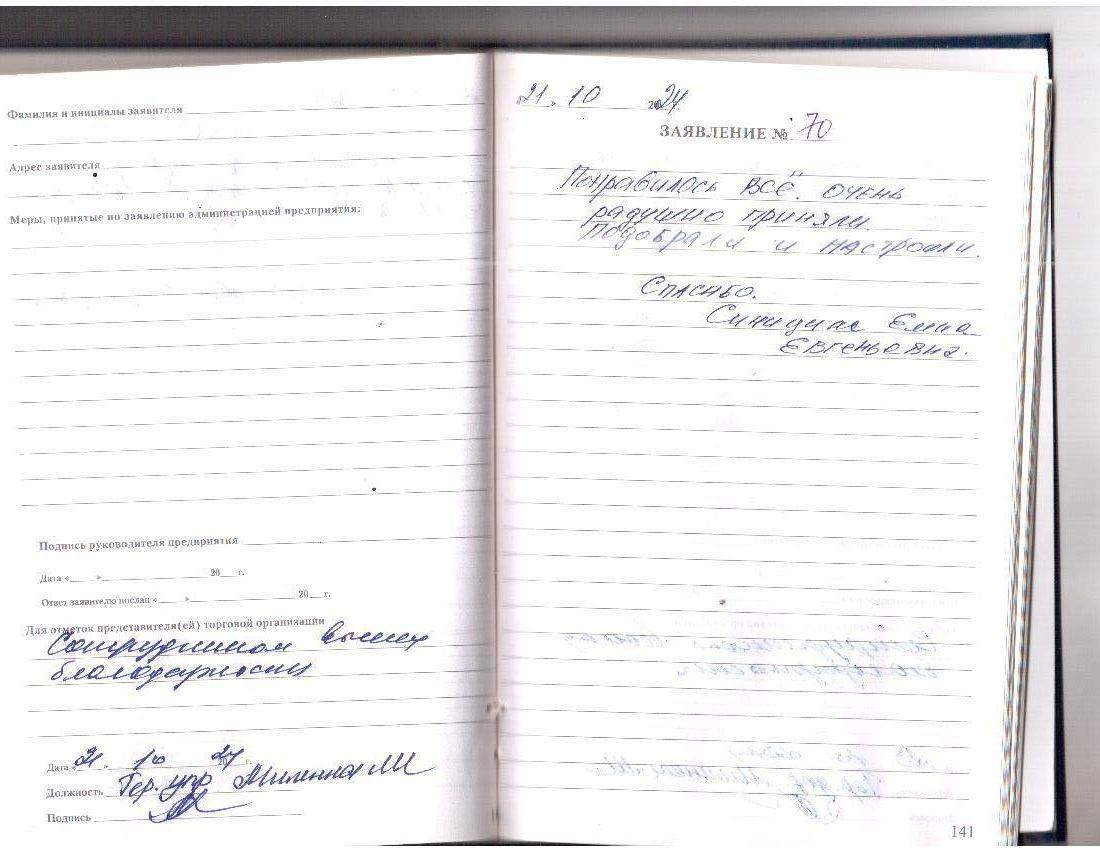 Фамилия и инициалы заявителя
Адрес заявителя
Меры, принятые по заявлению администрацией предприятия:
Подпись руководителя предприятия
Дата «___ »___ 20__ г.
Ответ заявителю послан «___ »___ 20__ г.
Для отметок представителя(ей) торговой организации
Сотрудникам
благодарность
Дата «21 » 10 24
Должность Тер. упр
Подпись
«21» 10 2024
ЗАЯВЛЕНИЕ № 70
Понравилось всё. очень
радушно приняли.
Подобрали и настроили.
Спасибо.
Елена
Евгеньевна.
141